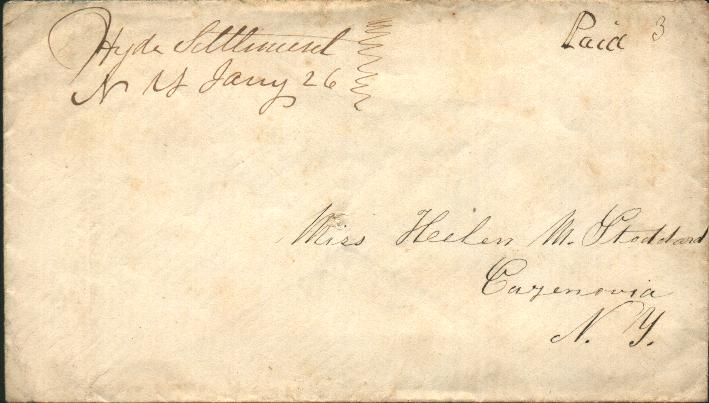 Hyde Settlement
N Y Jany 26
Paid 3
Miss Helen M. Stoddard
Cazenovia
N. Y.